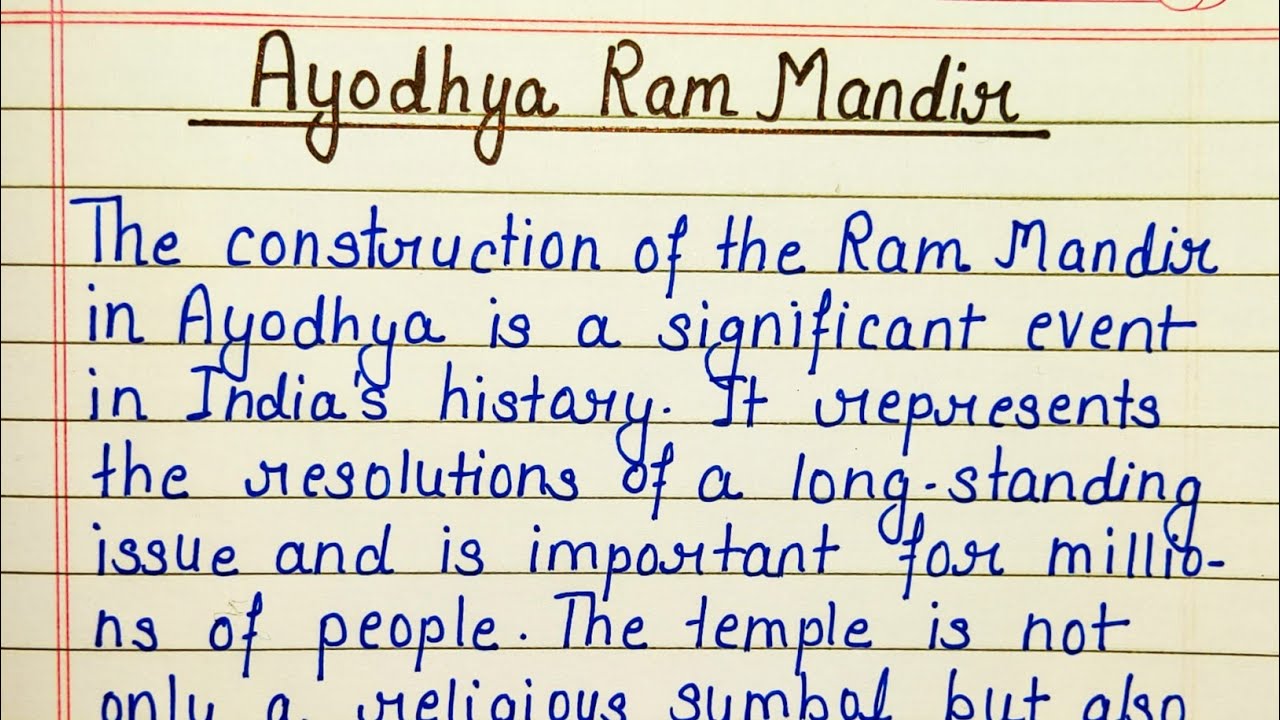 Ayodhya Ram Mandir
The construction of the Ram Mandir
in Ayodhya is a significant event
in India's history. It represents
the resolutions of a long-standing
issue and is important for millio-
ns of people. The temple is not
only a religious symbol but also